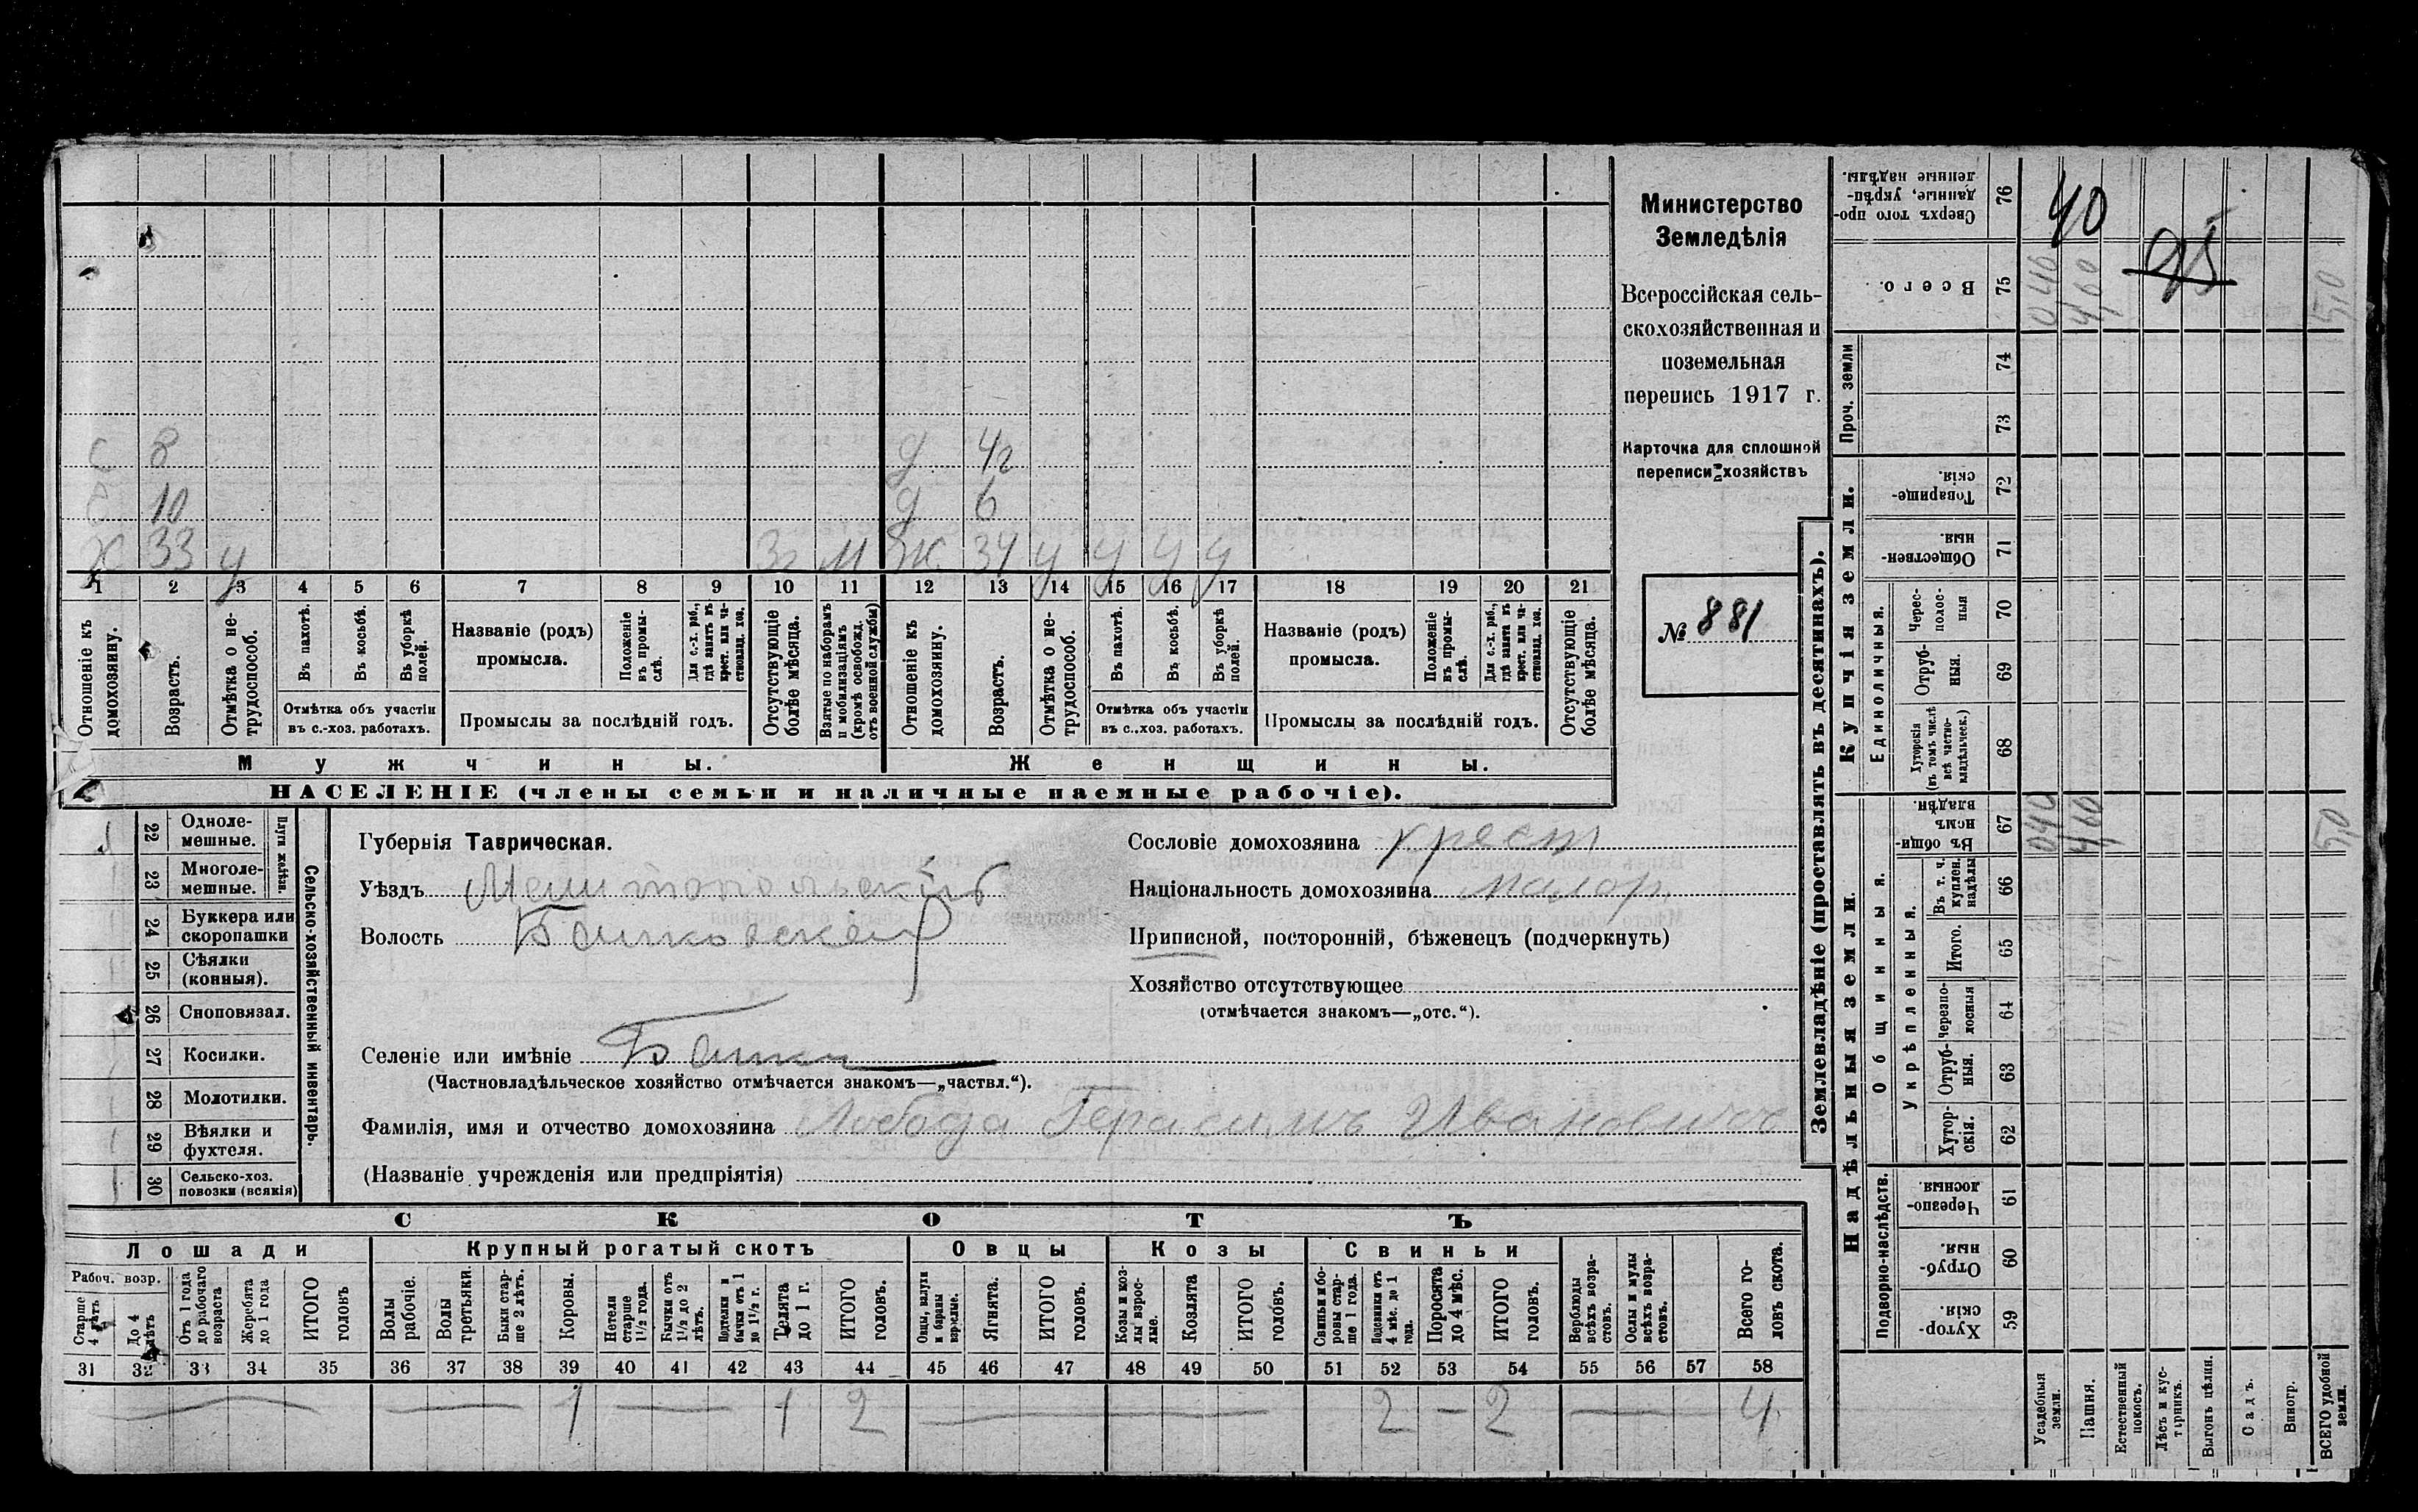 с 8 д 4г
с 10 д 6
Х 33 у 3г М Ж 34 у у у у
1 2 3 4 5 6 7 8 9 10 11 12 13 14 15 16 17 18 19 20 21
Отношеніе къ домохозяину.
Возрастъ.
Отмѣтка о нетрудоспособ.
Въ пахотѣ.
Въ косьбѣ.
Въ уборкѣ полей.
Отмѣтка объ участіи въ с.-хоз. работахъ.
Названіе (родъ) промысла.
Положеніе въ промыслѣ.
Для с.-х. раб., гдѣ занятъ въ крест. или частновлад. хоз.
Промыслы за послѣдній годъ.
Отсутствующіе болѣе мѣсяца.
Взятые по наборамъ и мобилизаціямъ (кромѣ освобожд. отъ военной службы)
Отношеніе къ домохозяину.
Возрастъ.
Отмѣтка о нетрудоспособ.
Въ пахотѣ.
Въ косьбѣ.
Въ уборкѣ полей.
Отмѣтка объ участіи въ с..хоз. работахъ.
Названіе (родъ) промысла.
Положеніе въ промыслѣ.
Для с.-х. раб., гдѣ занята въ крест. или частновлад. хоз.
Промыслы за послѣдній годъ.
Отсутствующіе болѣе мѣсяца.
Мужчины. Женщины.
НАСЕЛЕНІЕ (члены семьи и наличные наемные рабочіе).
Министерство
Земледѣлія
Всероссійская сель-
скохозяйственная и
поземельная
перепись 1917 г.
Карточка для сплошной
переписи хозяйствъ
№ 881
22 Однолемешные.
23 Многолемешные.
Плуги желѣзн.
24 Буккера или скоропашки
25 Сѣялки (конныя).
26 Сноповязал.
27 Косилки.
28 Молотилки.
29 Вѣялки и фухтеля.
30 Сельско-хоз. повозки (всякія)
Сельско-хозяйственный инвентарь.
Губернія Таврическая.
Уѣздъ Мелитопольскій
Волость Балковская
Селеніе или имѣніе Балки
(Частновладѣльческое хозяйство отмѣчается знакомъ—„частвл.“).
Фамилія, имя и отчество домохозяина Лобода Герасимъ Ивановичъ
(Названіе учрежденія или предпріятія)
Сословіе домохозяина крест
Національность домохозяина малор.
Приписной, посторонній, бѣженецъ (подчеркнуть)
Хозяйство отсутствующее
(отмѣчается знакомъ—„отс.“).
СКОТЪ
Лошади Крупный рогатый скотъ Овцы Козы Свиньи
Рабоч. возр.
Старше 4 лѣтъ
До 4 лѣтъ
Отъ 1 года до рабочаго возраста
Жеребята до 1 года
ИТОГО головъ
Волы рабочіе.
Волы третьяки.
Быки старше 2 лѣтъ.
Коровы.
Нетели старше 1½ года.
Бычки отъ 1½ до 2 лѣтъ.
Подтелки и бычки отъ 1 до 1½ г.
Телята до 1 г.
ИТОГО головъ.
Овцы, валухи и бараны взрослые.
Ягнята.
ИТОГО головъ.
Козы и козлы взрослые.
Козлята
ИТОГО головъ.
Свиньи и боровы старше 1 года.
Подсвинки отъ 4 мѣс. до 1 года.
Поросята до 4 мѣс.
ИТОГО головъ.
Верблюды всѣхъ возрастовъ.
Ослы и мулы всѣхъ возрастовъ.
Всего головъ скота.
31 32 33 34 35 36 37 38 39 40 41 42 43 44 45 46 47 48 49 50 51 52 53 54 55 56 57 58
— — 1 — 1 2 — 2 — 2 — 4
Землевладѣніе (проставлять въ десятинахъ).
Сверхъ того проданные, укрѣпленные надѣлы. 76 40
Всего. 75 0,40 4,60 95 5,0
Проч. земли 74 73
Купчія земли.
Товарищескія. 72
Общественныя. 71
Единоличныя.
Чересполосныя 70
Отрубныя. 69
Хуторскія (въ томъ числѣ всѣ частновладѣльческ.) 68
Надѣльныя земли.
Общинныя.
Въ общинномъ владѣн. 67 0,40 4,60 5,0
Укрѣпленныя.
Въ т. ч. куплен. надѣлы 66
Итого. 65
Черезполосныя 64
Отрубныя. 63
Хуторскія. 62
Подворно-наслѣдств.
Черезполосныя. 61
Отрубныя. 60
Хуторскія 59
Усадебныя земли.
Пашня.
Естественный покосъ.
Лѣсъ и кустарникъ.
Выгонъ цѣлин.
Садъ.
Виногр.
ВСЕГО удобной земли.